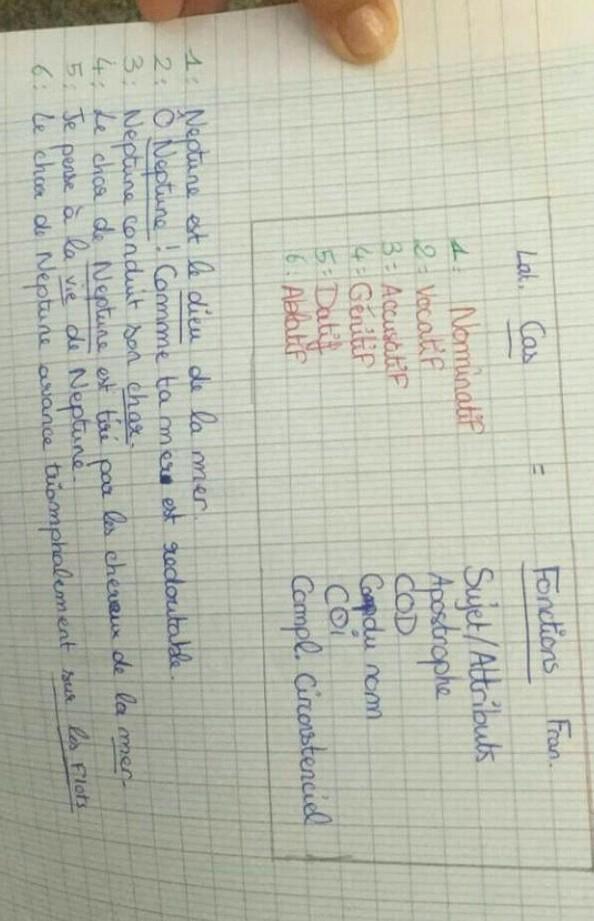 Lat. Cas = Fonctions Fran.
1: Nominatif Sujet/Attributs
2: Vocatif Apostrophe
3: Accusatif COD
4: Génitif Comp du nom
5: Datif COi
6. Ablatif Compl. Circonstenciel
1: Neptune est le dieu de la mer.
2: Ô Neptune ! Comme ta mer est redoutable.
3: Neptune conduit son char.
4: Le char de Neptune est tiré par les chevaux de la mer.
5: Je pense à la vie de Neptune.
6: Le char de Neptune avance triomphalement sur les Flots